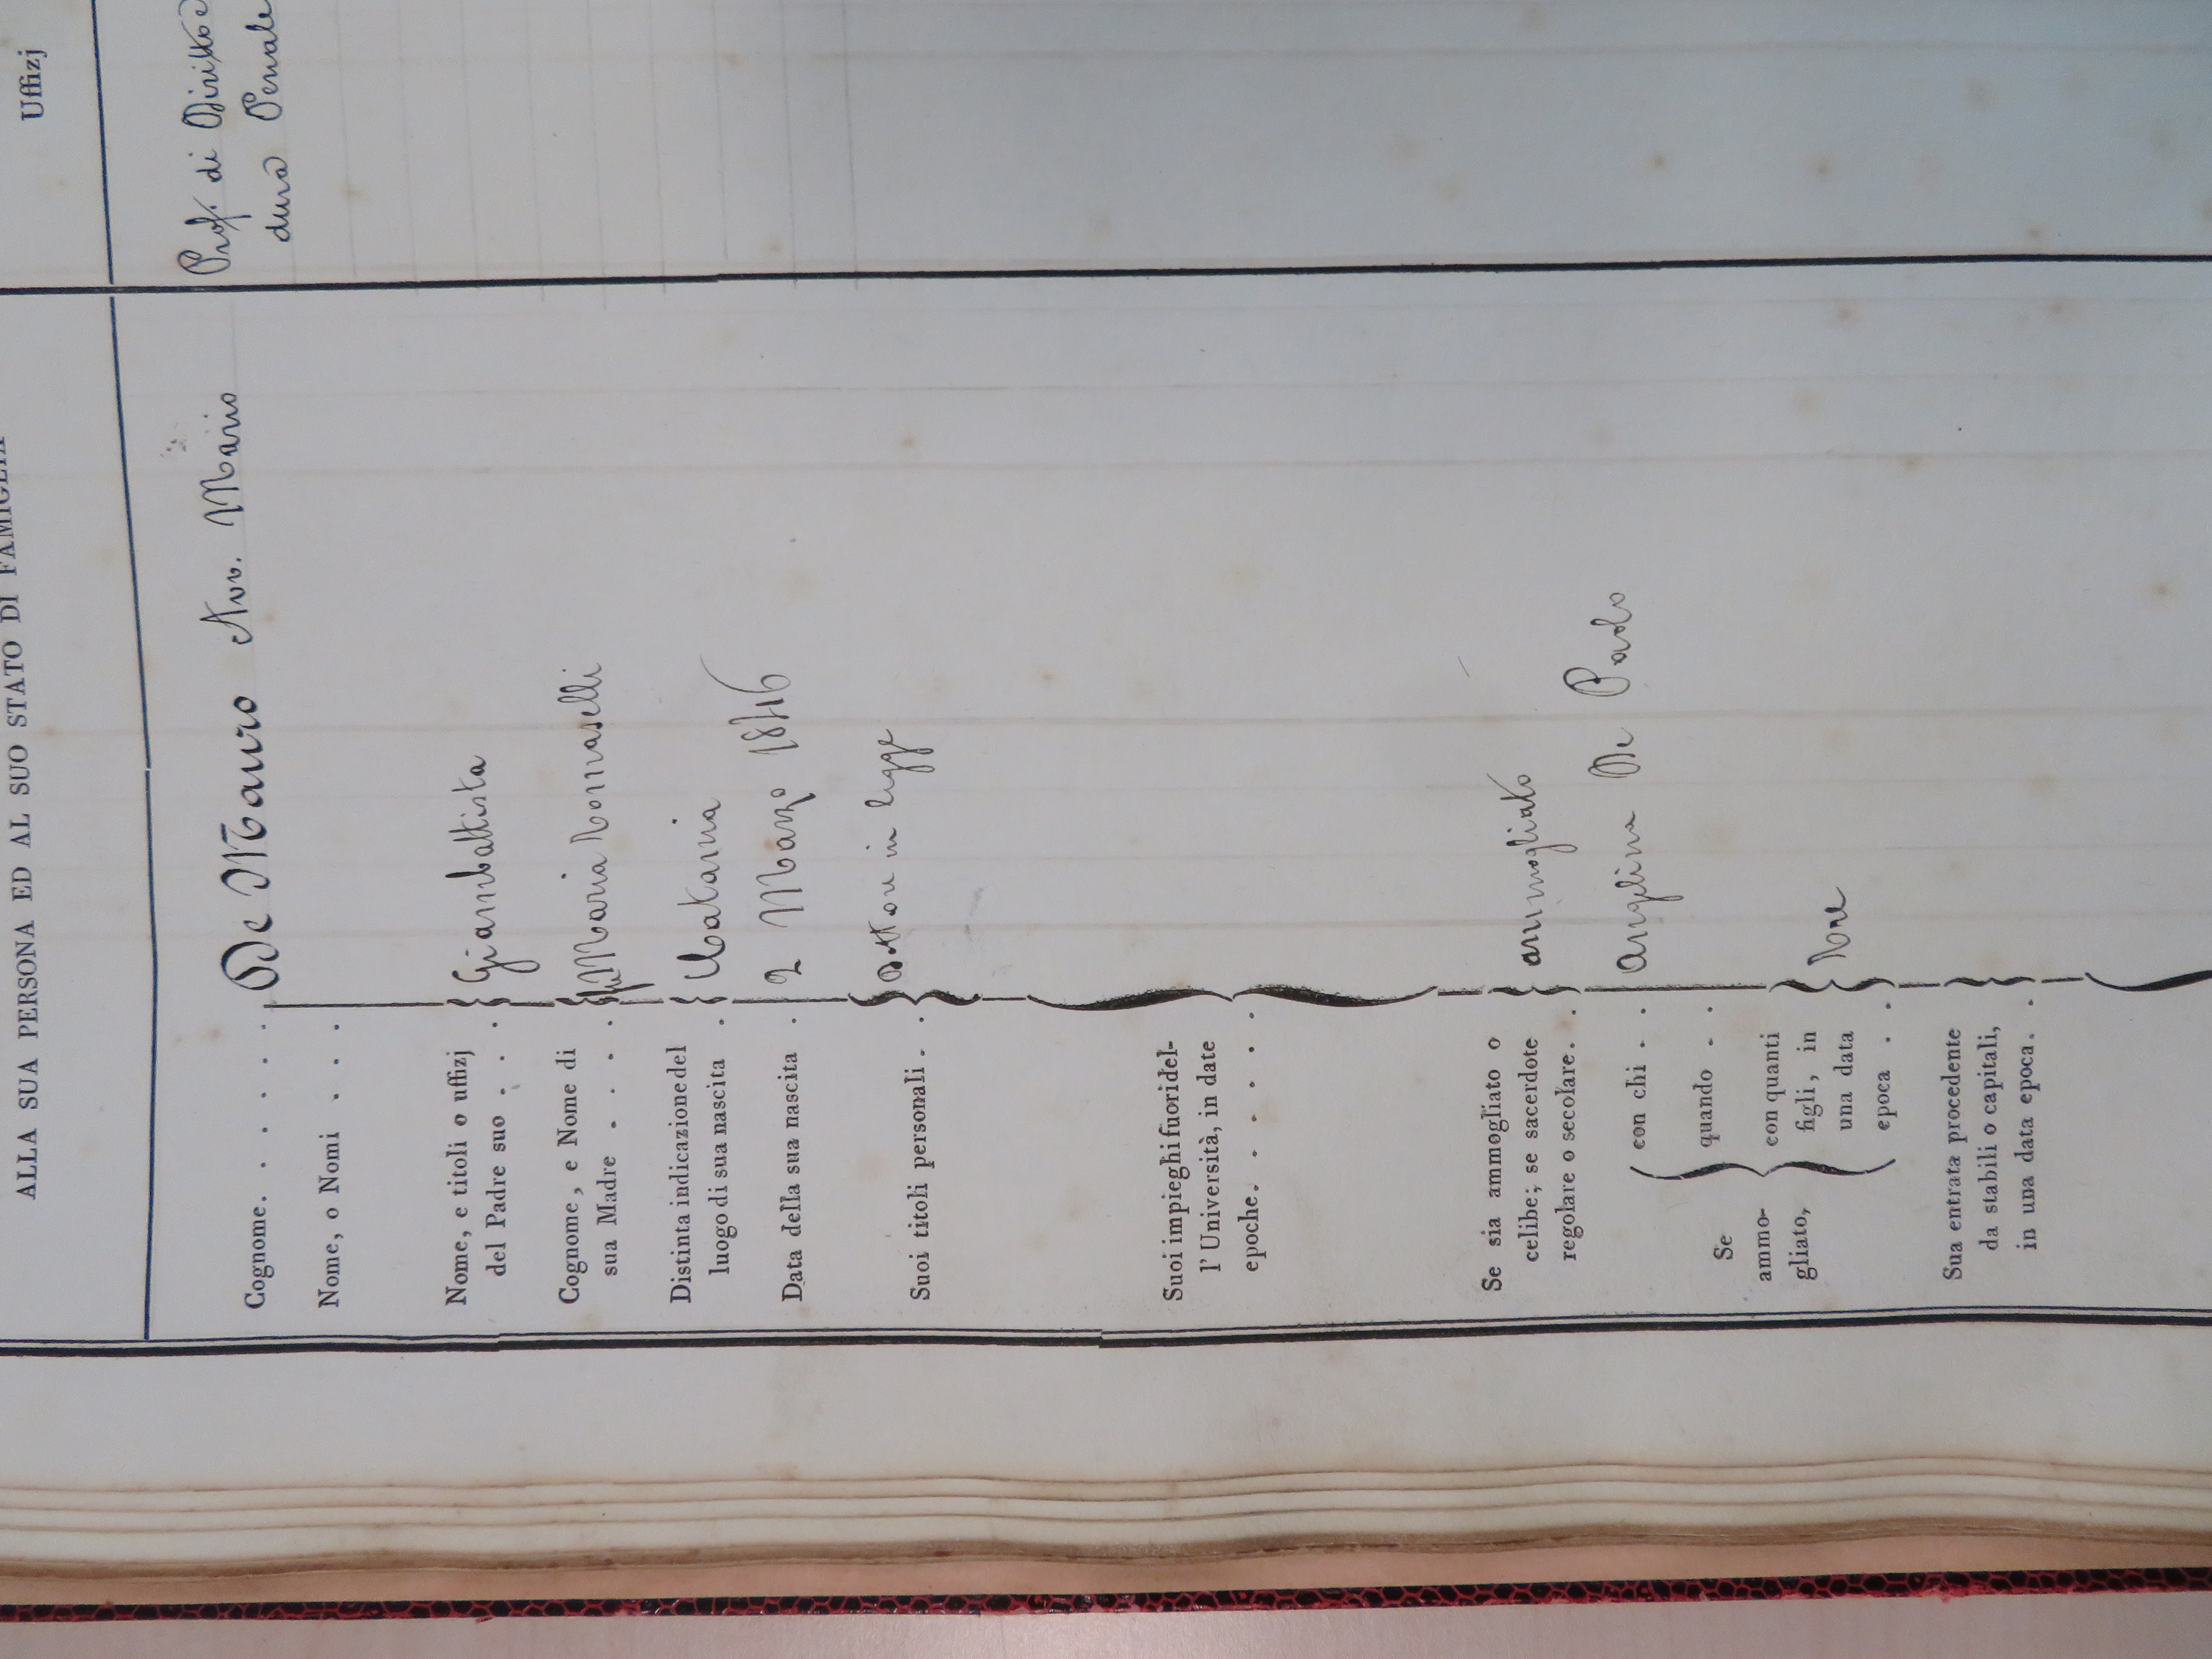 ALLA SUA PERSONA ED AL SUO STATO DI FAMIGLIA
Uffizj
Cognome. . . . . . De Mauro Avv. Mario
Nome, o Nomi . . .
Nome, e titoli o uffizj
del Padre suo . . . Giambattista
Cognome, e Nome di
sua Madre . . . . Maria Tomaselli
Distinta indicazione del
luogo di sua nascita . Catania
Data della sua nascita . 2 Marzo 1846
Suoi titoli personali . . Dottore in legge
Suoi impieghi fuori del-
l'Università, in date
epoche. . . . . .
Se sia ammogliato o
celibe; se sacerdote
regolare o secolare. . ammogliato
Se
ammo-
gliato,
con chi . . Angelina De Paolo
quando . .
con quanti
figli, in
una data
epoca . .
Sua entrata procedente
da stabili o capitali,
in una data epoca. .
Prof. di Diritto e
dura Penale